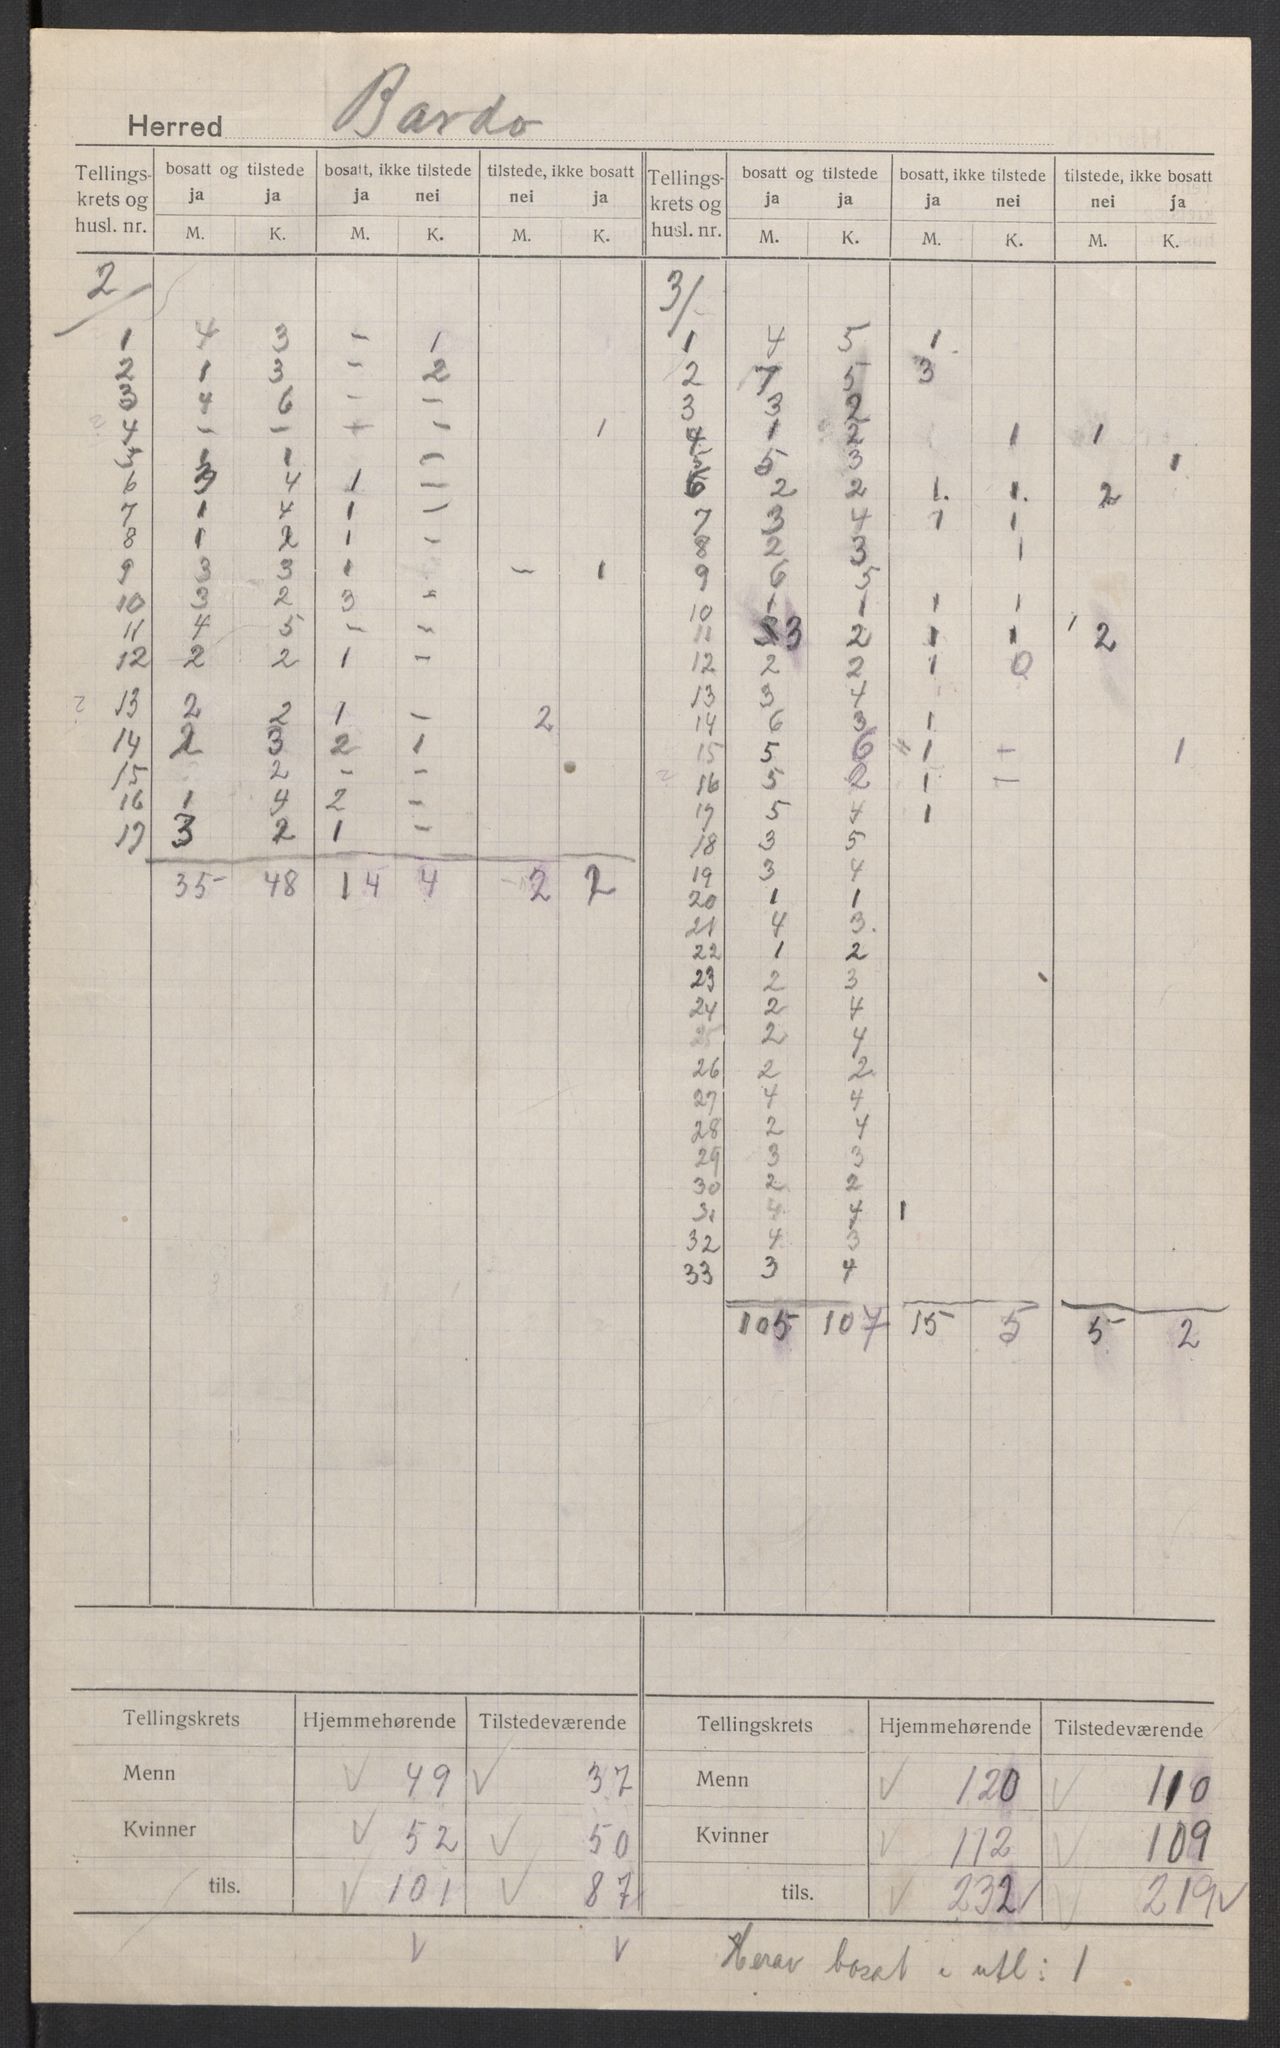 Herred Bardo
Tellings-krets og husl. nr. | bosatt og tilstede ja ja M. K. | bosatt, ikke tilstede ja nei M. K. | tilstede, ikke bosatt nei ja M. K. | Tellings-krets og husl. nr. | bosatt og tilstede ja ja M. K. | bosatt, ikke tilstede ja nei M. K. | tilstede, ikke bosatt nei ja M. K.
2/
1 4 3 – 1
2 1 3 – 2
3 4 6 – –
4 – – – – 1
5 1 1 –
6 3 4 1 –
7 1 4 1 –
8 1 2 1 –
9 3 3 1 – 1
10 3 2 3 –
11 4 5 – –
12 2 2 1 –
? 13 2 2 1 – 2
14 2 3 2 1
15 2 – –
16 1 4 2 –
17 3 2 1 –
35 48 14 4 2 2
3/
1 4 5 1
2 7 5 3
3 3 2
4 1 2 1 1
5 5 3 1
6 2 2 1. 1. 2
7 3 4 1 1
8 2 3 1
9 6 5
10 1 1 1 1
11 3 2 1 1 2
12 2 2 1 0
13 3 4
14 6 3 1
15 5 6 1 – 1
16 5 2 1 –
17 5 4 1
18 3 5
19 3 4
20 1 1
21 4 3.
22 1 2
23 2 3
24 2 4
25 2 4
26 2 2
27 4 4
28 2 4
29 3 3
30 2 2
31 4 4 1
32 4 3
33 3 4
105 107 15 5 5 2
Tellingskrets Hjemmehørende Tilstedeværende
Menn √ 49 √ 37
Kvinner √ 52 √ 50
tils. √ 101 √ 87
√ √
Tellingskrets Hjemmehørende Tilstedeværende
Menn √ 120 √ 110
Kvinner √ 112 √ 109
tils. √ 232 √ √ 219 √
Herav bosat i utl: 1